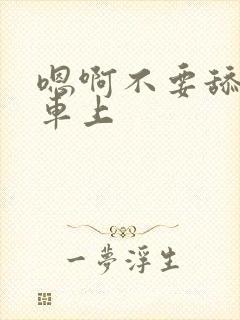 嗯啊不要舔
車上
一夢浮生